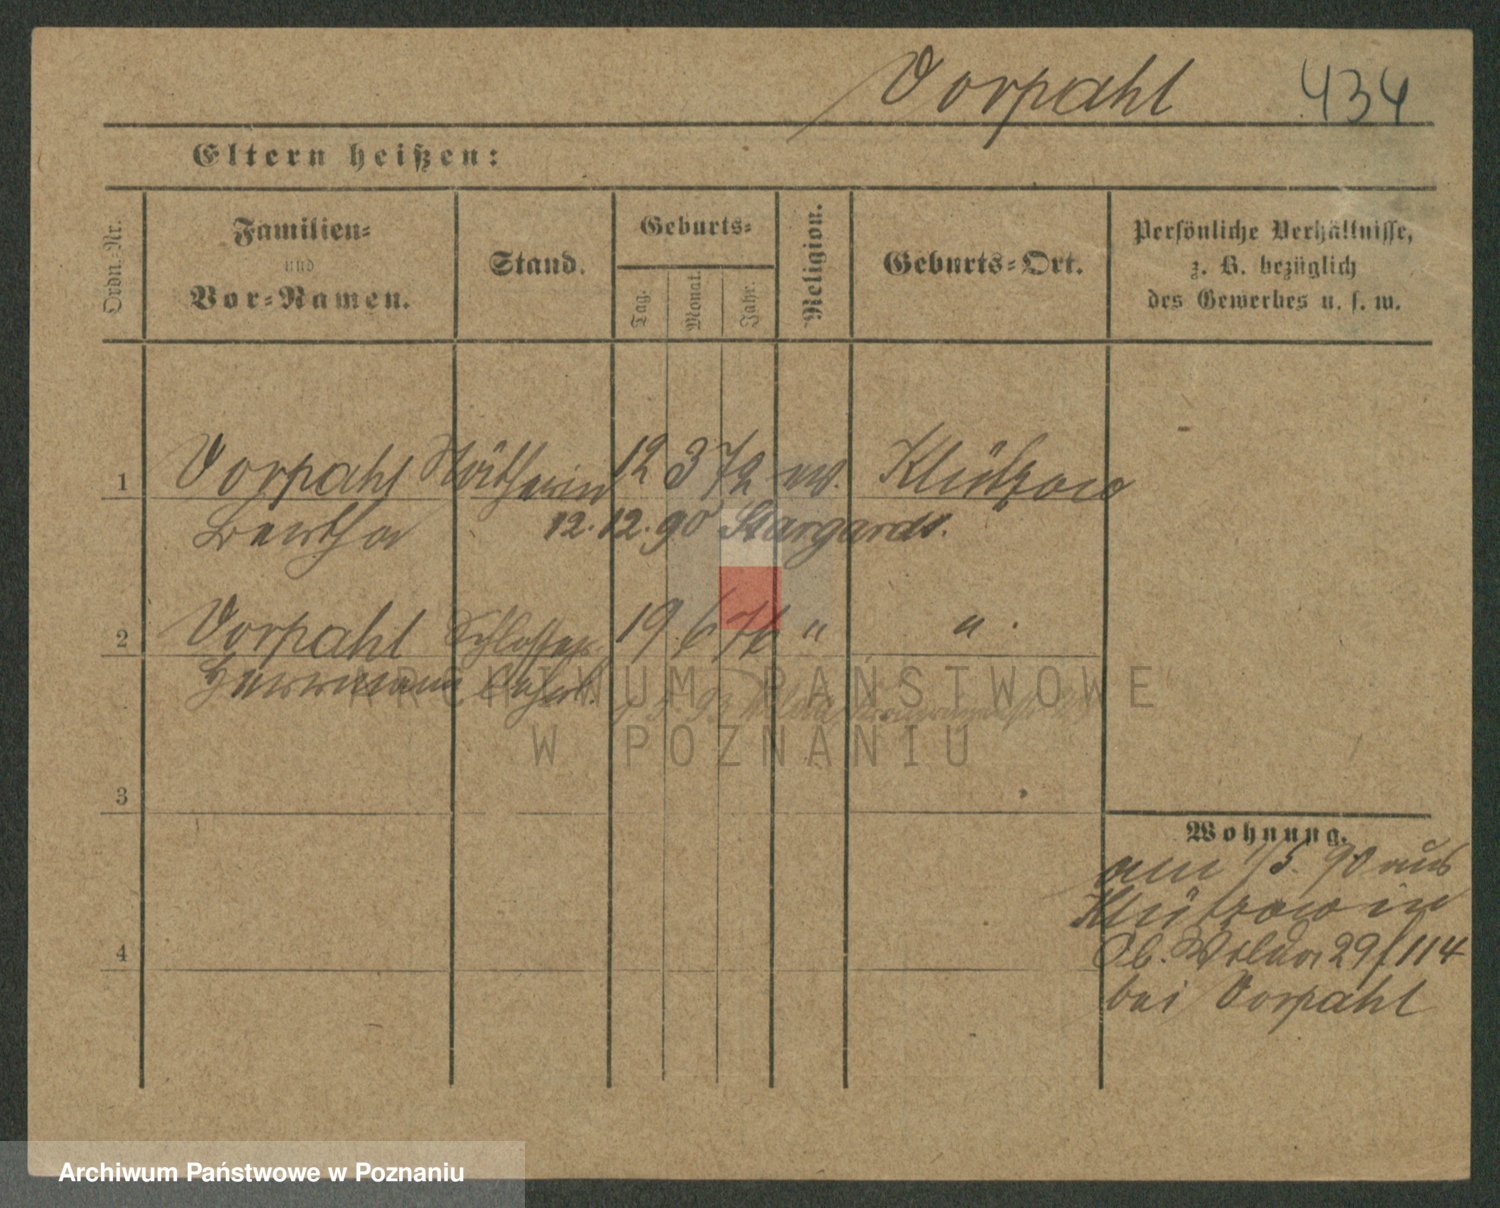 Vorpahl 434
Eltern heißen:
Ordn.-Nr.
Familien-
und
Vor-Namen.
Stand.
Geburts-
Tag.
Monat.
Jahr.
Religion.
Geburts-Ort.
Persönliche Verhältnisse,
z. B. bezüglich
des Gewerbes u. s. w.
1 Vorpahl Nätherin 12 3 72 ev. Klützow
Bertha 12.12.90 Stargardt.
2 Vorpahl Schlosser 19 6 76 " "
Herrmann
3
4
Wohnung.
am 1/5. 90 aus
Klützow in
Ob. Wilda 29/114
bei Vorpahl
ARCHIWUM PAŃSTWOWE
W POZNANIU
Archiwum Państwowe w Poznaniu